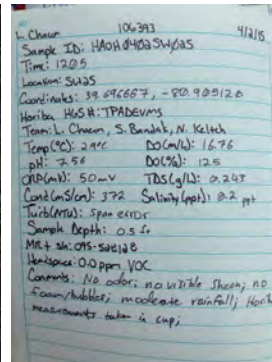 L. Chacon 106393 4/2/15
Sample ID: HAOH0402SW025
Time: 1205
Location: SW25
Coordinates: 39.696667, -80.905120
Horiba HGSH: TPADEVMS
Team: L. Chacon, S. Bandak, N. Keltch
Temp(°C): 29°C DO(m/L): 16.76
pH: 7.56 DO(%): 125
ORP(mV): 50mV TDS(g/L): 0.243
Cond(mS/cm): 372 Salinity(ppt): 0.2 ppt
Turb(NTU): span error
Sample Depth: 0.5 ft
Headspace: 0.0 ppm VOC
Comments: No odor; no visible sheen; no
foam/bubbles; moderate rainfall;
measurements taken in cup;